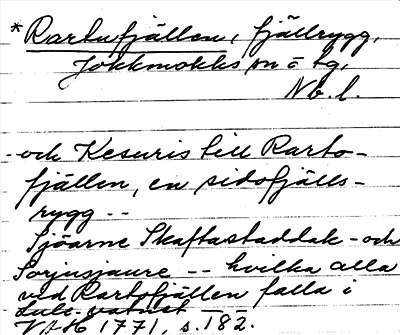 *Rartufjällen, fjällrygg,
Jokkmokks sn o tg,
Nb. l.
- och Kesuris till Rarto-
fjällen, en sidofjälls-
rygg --
Sjöarne Skaftastaddak - och
Sorjusjaure -- hvilka alla
vid Rartofjällen falla i
Lule-vatnet
1771, s. 182.